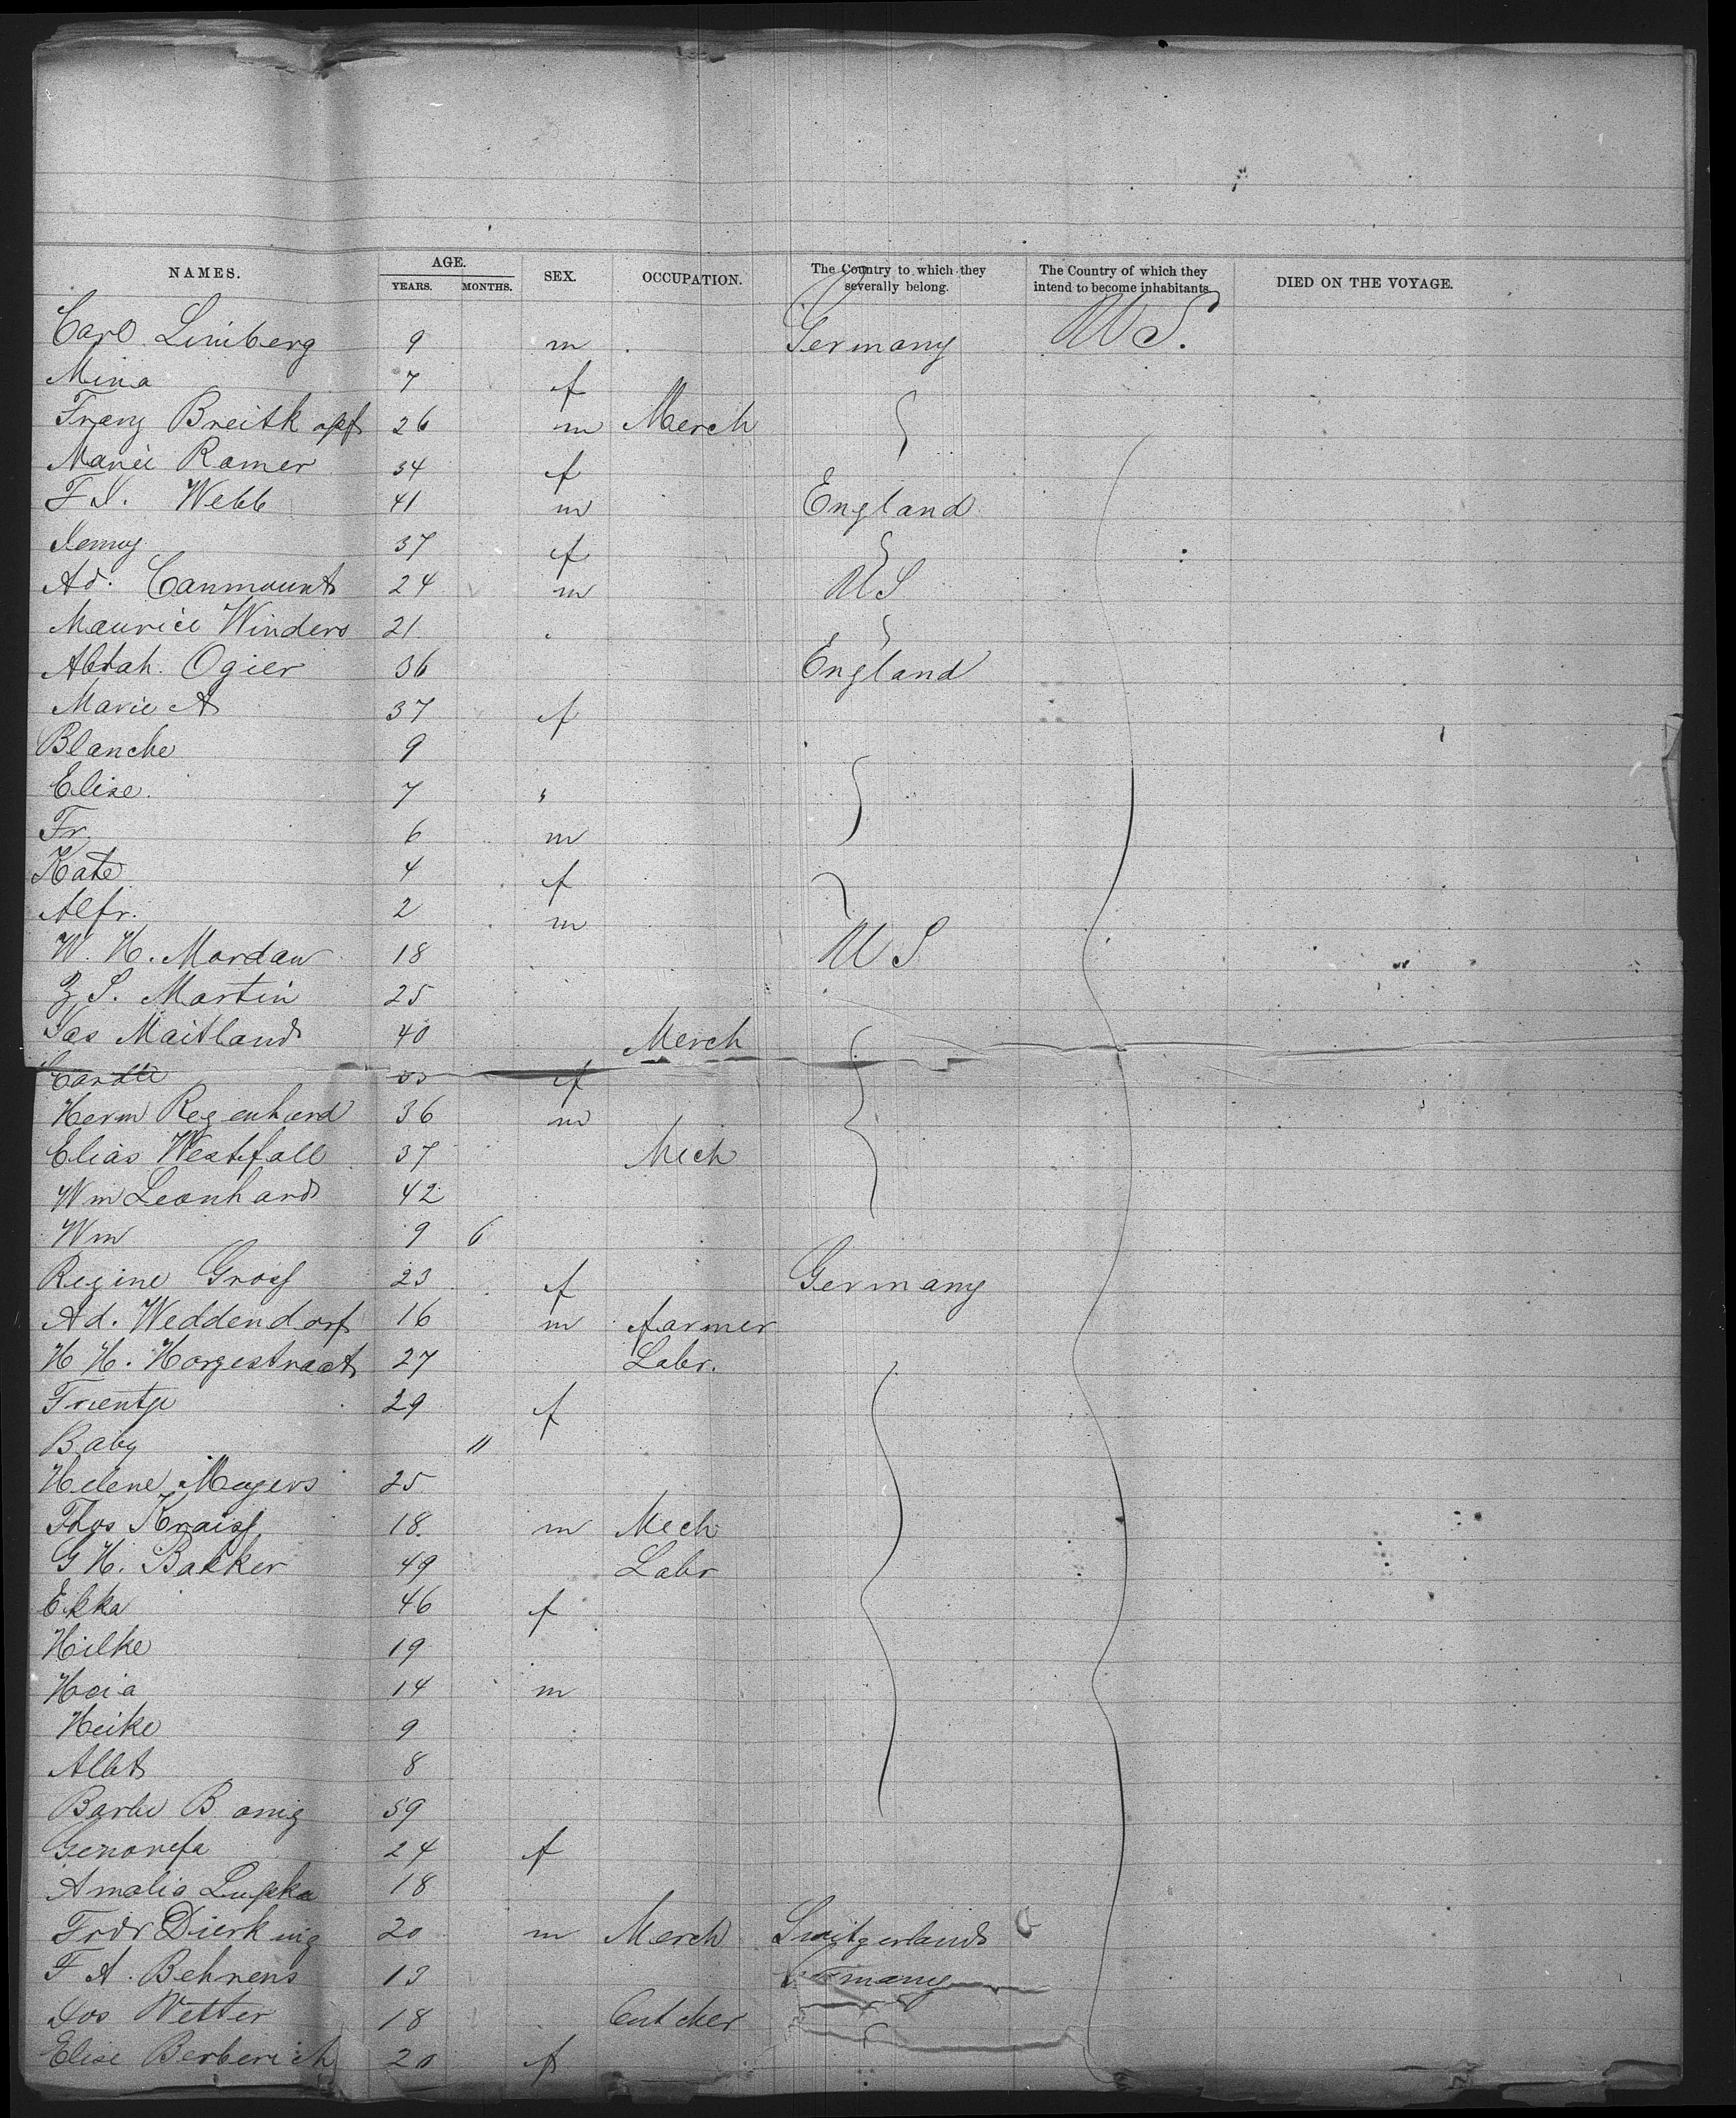 NAMES. AGE. YEARS. MONTHS. SEX. OCCUPATION. The Country to which they severally belong. The Country of which they intend to become inhabitants. DIED ON THE VOYAGE.
Carl Limberg 9 m Germany U S.
Mina 7 f
Franz Breitkopf 26 m Merch
Marie Ramer 34 f
F J. Webb 41 m England
Jenny 37 f
Ad. Canmount 24 m U S
Maurice Winders 21
Abrah. Ogier 36 England
Marie A 37 f
Blanche 9
Elise. 7 "
Fr. 6 m
Kate 4 f
Alfr. 2 m
W. H. Mordau 18 U S
Z. S. Martin 25
Jas Maitland 40 Merch
f
Herm Regenhard 36 m
Elias Westfall 37 Mech
Wm Leonhard 42
Wm 9 6
Regine Gross 23 f Germany
Ad. Weddendorf 16 m farmer
H H. Horgestraat 27 Labr.
Trientje 29 f
Baby 11
Helene Meyers 25
Thos Kraiss 18. m Mech
G H. Bakker 49 Labr
Ekka 46 f
Hilke 19
Heia 14 m
Heike 9
Albt 8
Barbe Bonig 59
Genovefa 24 f
Amalia Lupka 18
Fridr Dierking 20 m Merch Switzerland
F A. Behrens 13 Germany
Jos Wetter 18 butcher
Elise Berberich 20 f